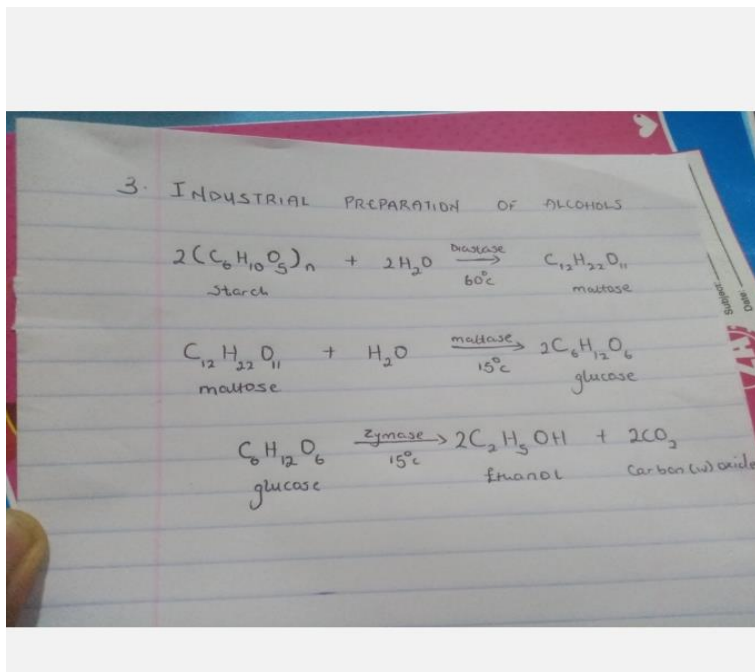 3. INDUSTRIAL PREPARATION OF ALCOHOLS
2(C₆H₁₀O₅)ₙ + 2H₂O Diastase → 60°C C₁₂H₂₂O₁₁
Starch maltose
C₁₂H₂₂O₁₁ + H₂O maltase → 15°C 2C₆H₁₂O₆
maltose glucose
C₆H₁₂O₆ Zymase → 15°C 2C₂H₅OH + 2CO₂
glucose Ethanol Carbon(iv)oxide
Subject:
Date: